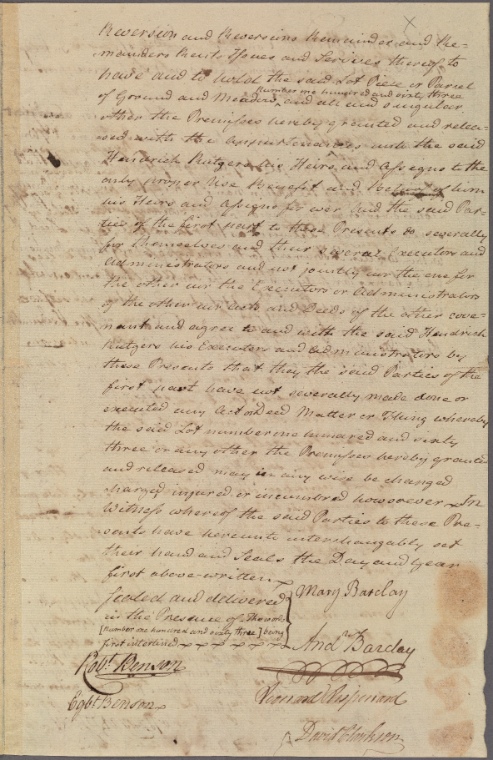 Reversion and Reversions Remainder and Re-
mainders Rents Issues and Services thereof to
have and to hold the said Lot Piece or Parcel
number one hundred and sixty three
of Ground and Meadow and all and singular
other the Premisses hereby granted and relea-
sed with the Appurtenances unto the said
Hendrick Rutgers his Heirs and Assigns to the
only proper Use Benefit and Behoof of him
his Heirs and Assigns for ever And the said Par-
ties of the first part to these Presents do severally
for themselves and their several Executors and
Administrators and not jointly nor the one for
the other nor the Executors or Administrators
of the other nor Acts and Deeds of the other cove-
nant and agree to and with the said Hendrick
Rutgers his Executors and Administrators by
these Presents that they the said Parties of the
first part have not severally made done or
executed any Act or Deed Matter or Thing whereby
the said Lot number one hundred and sixty
three or any other the Premisses hereby granted
and released may in any wise be changed
charged injured or incumbred howsoever In
Witness whereof the said Parties to these Pre-
sents have hereunto interchangably set
their hand and Seals the Day and Year
first above written
Sealed and delivered
in the Presence of the words
[number one hundred and sixty three] being
first interlined
Mary Barclay
And.w Barclay
Rob.t Benson
Egb.t Benson
Leonard Lispenard
David Clarkson